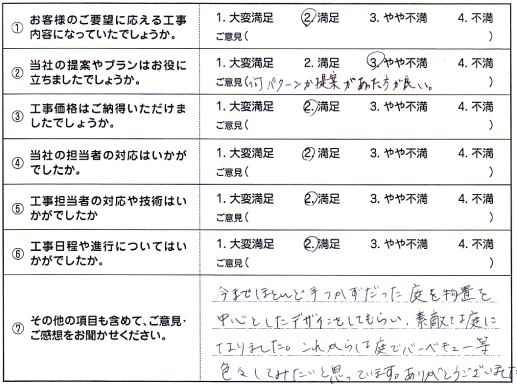 ① お客様のご要望に応える工事内容になっていたでしょうか。
1. 大変満足 2. 満足 3. やや不満 4. 不満
ご意見( )
② 当社の提案やプランはお役に立ちましたでしょうか。
1. 大変満足 2. 満足 3. やや不満 4. 不満
ご意見(何パターンか提案があった方が良い。 )
③ 工事価格はご納得いただけましたでしょうか。
1. 大変満足 2. 満足 3. やや不満 4. 不満
ご意見( )
④ 当社の担当者の対応はいかがでしたか。
1. 大変満足 2. 満足 3. やや不満 4. 不満
ご意見( )
⑤ 工事担当者の対応や技術はいかがでしたか
1. 大変満足 2. 満足 3. やや不満 4. 不満
ご意見( )
⑥ 工事日程や進行についてはいかがでしたか。
1. 大変満足 2. 満足 3. やや不満 4. 不満
ご意見( )
⑦ その他の項目も含めて、ご意見・ご感想をお聞かせください。
今までほとんど手つかずだった庭を物置を
中心としたデザインをしてもらい、素敵な庭に
なりました。これからは庭でバーベキュー等
色々してみたいと思っています。ありがとうございました